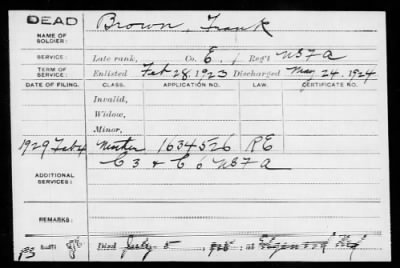 DEAD
NAME OF SOLDIER: Brown, Frank
SERVICE: Late rank, Co. E, Reg't USFA
TERM OF SERVICE: Enlisted Feb 28, 1923 Discharged May 24, 1924
DATE OF FILING. CLASS. APPLICATION NO. LAW. CERTIFICATE NO.
Invalid,
Widow,
Minor,
1929 Feb 4 Mother 1634526 RE
ADDITIONAL SERVICES: C 3 & C 6 USFA
REMARKS:
Died July 5 at Edgewood Md